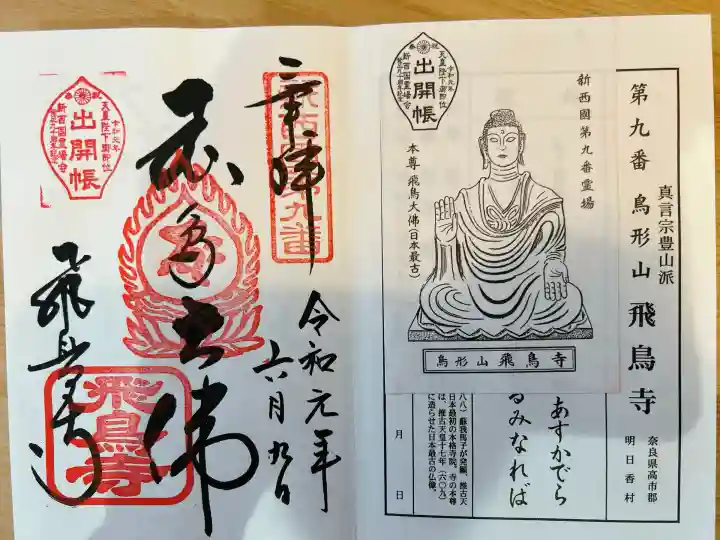 真言宗豊山派
第九番 鳥形山 飛鳥寺
奈良県高市郡
明日香村
新西國第九番霊場
本尊 飛鳥大佛(日本最古)
祝
奉
令和元年
天皇陛下御即位
出開帳
鳥形山 飛鳥寺
あすかでら
るみなれば
八八)蘇我馬子が発願、推古天
日本最初の本格寺院。寺の本尊
は、推古天皇十七年(六〇九)
に造らせた日本最古の仏像。
月 日
奉拝
令和元年
六月九日
新西国第九番
飛鳥大佛
飛鳥寺
飛鳥寺
祝
奉
令和元年
天皇陛下御即位
出開帳
新西国霊場会